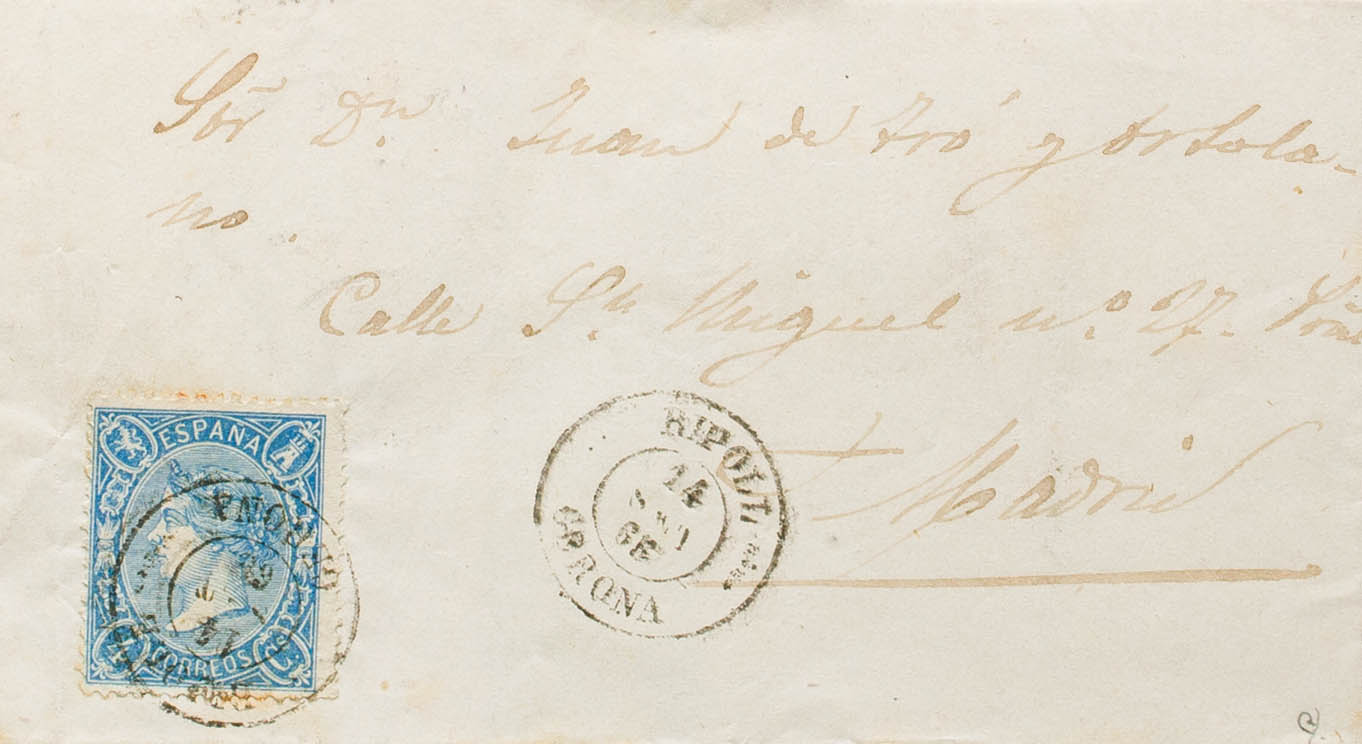 Sor Dn Juan de Tró y Ortola-
no.
Calle Sn Miguel no. 27.
Madrid
ESPAÑA
CORREOS
RIPOLL
14
66
GERONA
GERONA
14